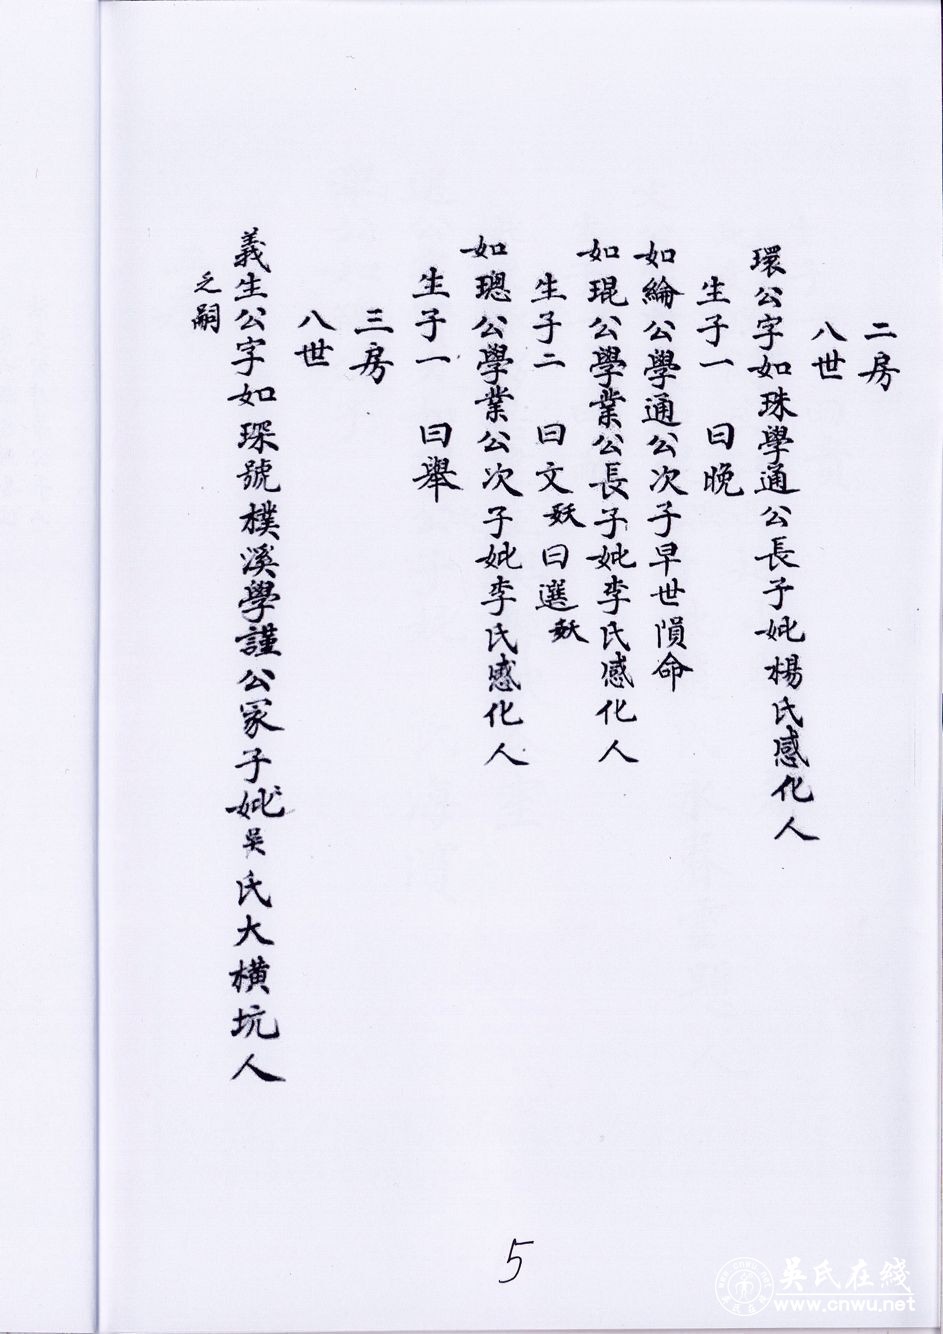 二房
八世
環公字如珠學通公長子妣楊氏感化人
生子一 曰晚
如綸公學通公次子早世隕命
如琨公學業公長子妣李氏感化人
生子二 曰文妖曰選妖
如璁公學業公次子妣李氏感化人
生子一 曰舉
三房
八世
義生公字如琛號樸溪學謹公冢子妣吳氏大橫坑人
乏嗣
5
吳氏在綫
www.cnwu.net